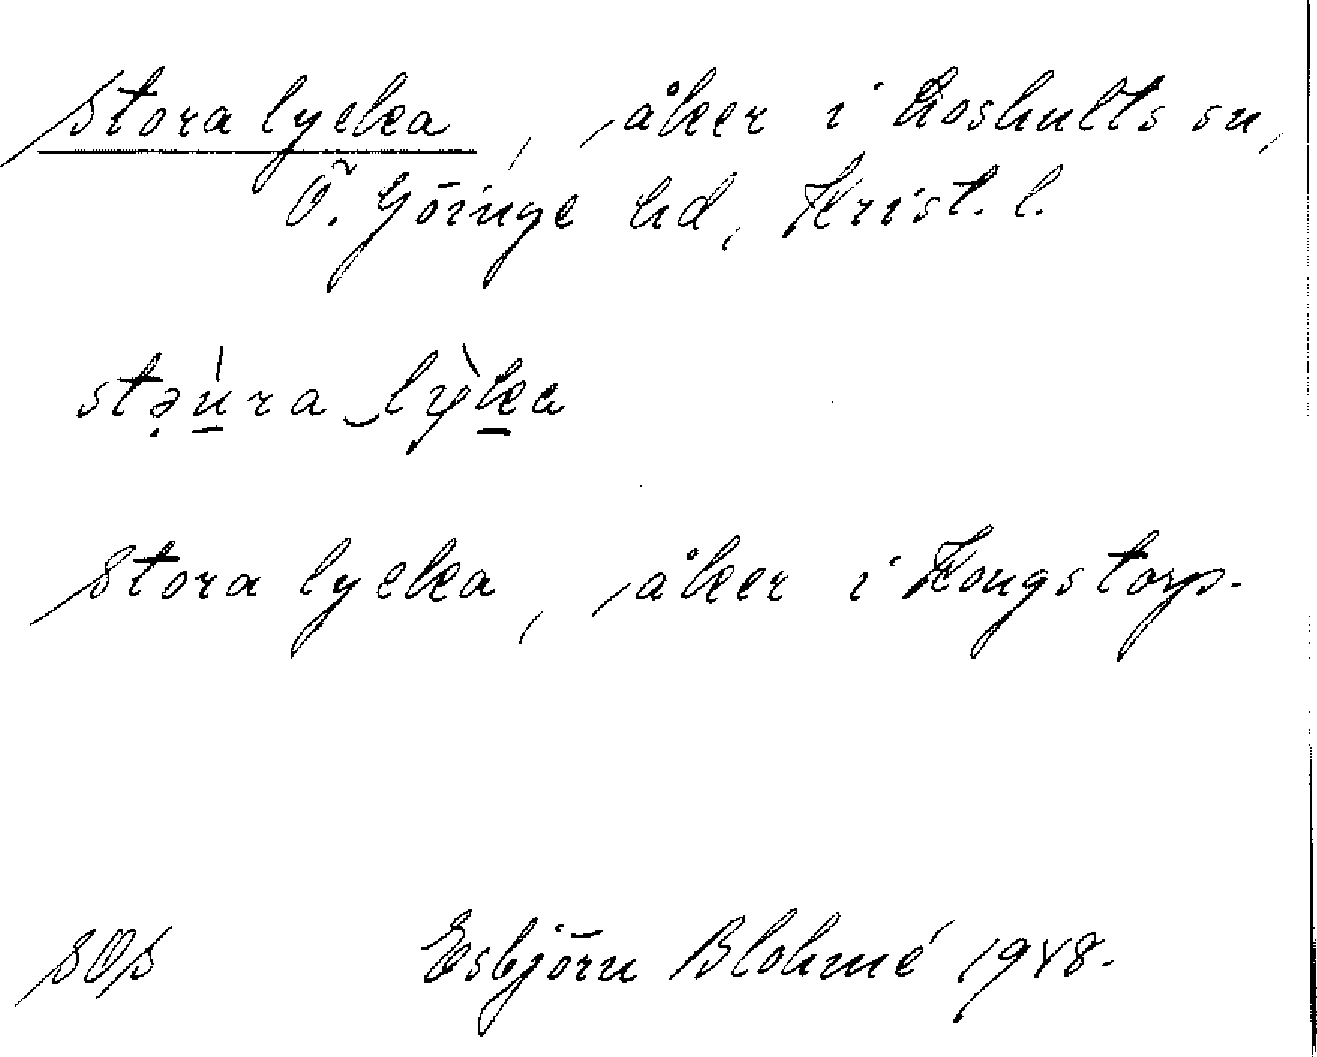 Stora lycka, åker i Loshults sn,
Ö. Göinge hd, Krist. l.
stə̣ú̱ra‿lỳḵa
Stora lycka, åker i Kongstorp.
SOS Esbjörn Blohmé 1948.